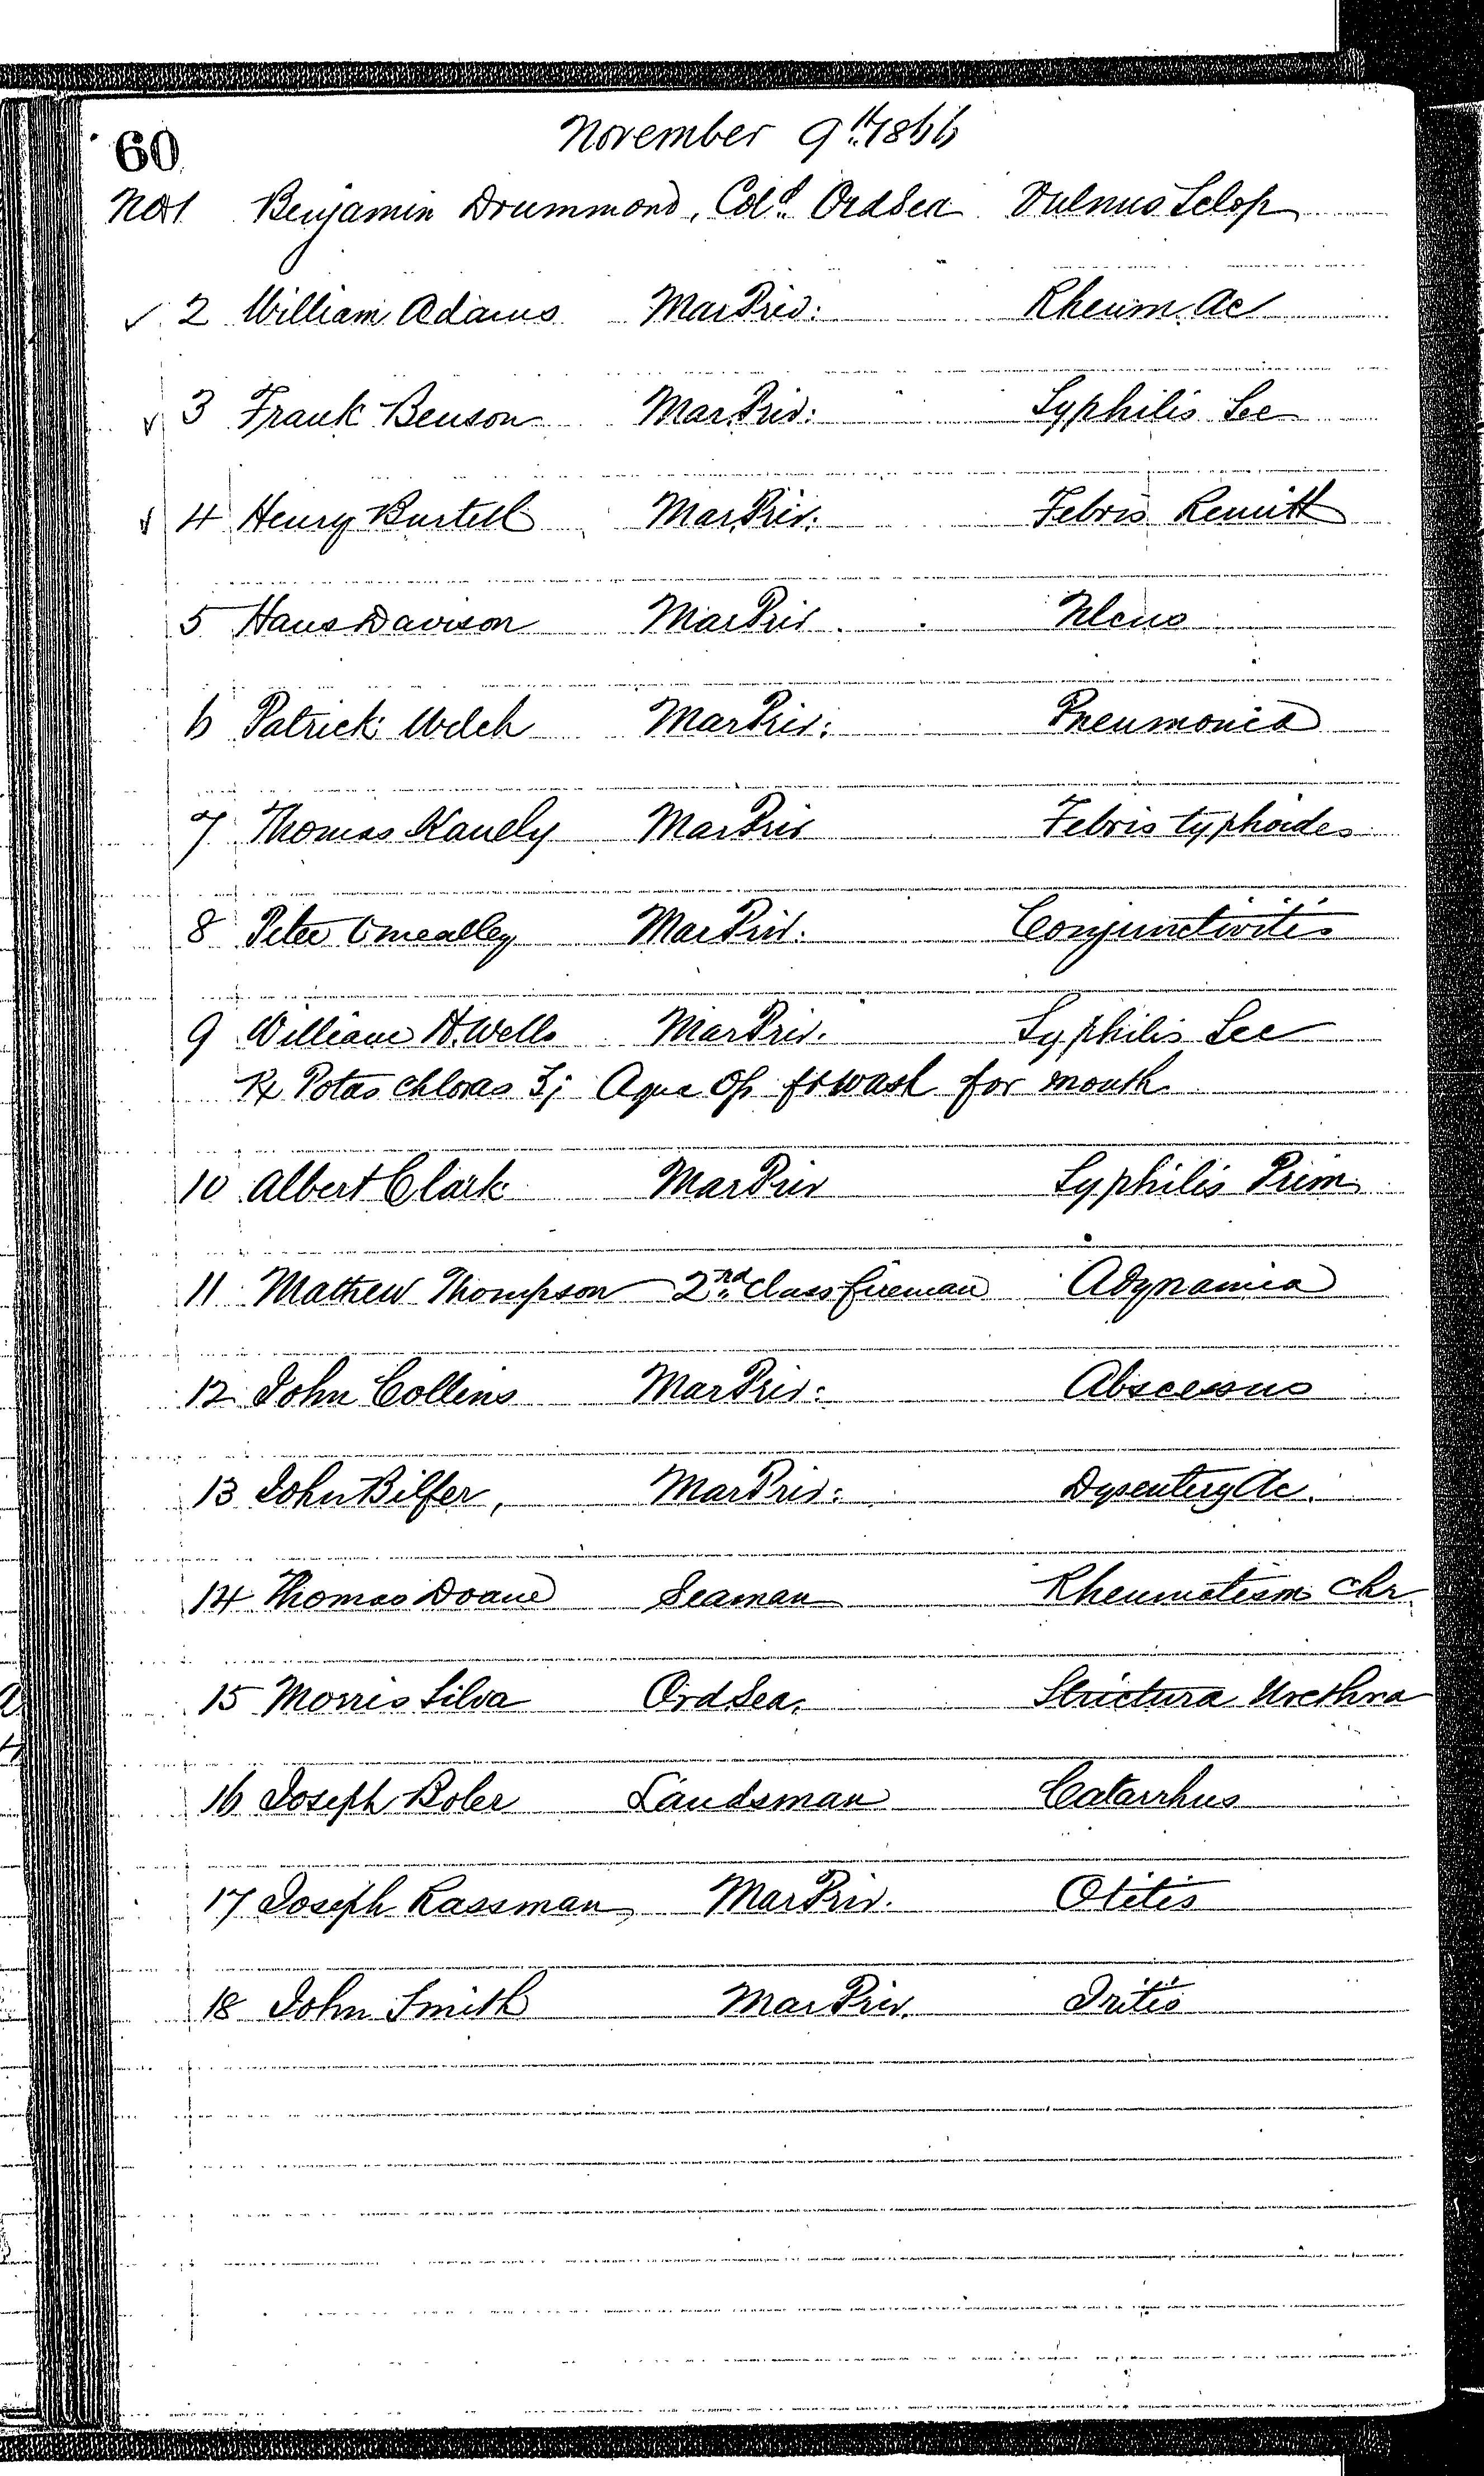 60
November 9th 1866
No 1 Benjamin Drummond, Cold OrdSea Vulnus Sclop
✓ 2 William Adams MarPriv: Rheum Ac
✓ 3 Frank Benson MarPriv: Syphilis Sec
✓ 4 Henry Burtell MarPriv: Febris Remitt
5 Hans Davison MarPriv Ulcus
6 Patrick Welch MarPriv: Pneumonia
7 Thomas Kanely MarPriv Febris typhoides
8 Peter Omealley MarPriv. Conjunctivitis
9 William H. Wells MarPriv. Syphilis Sec
Rx Potas chloras ʒj Aqua Oj ft wash for mouth
10 Albert Clark MarPriv Syphilis Prim
11 Mathew Thompson 2nd Class fireman Adynamia
12 John Collins MarPriv: Abscessus
13 John Bilfer, MarPriv: Dysentery Ac.
14 Thomas Doane Seaman Rheumatism Chr.
15 Morris Silva OrdSea, Strictura Urethra
16 Joseph Boler Landsman Catarrhus
17 Joseph Rassman, MarPriv. Otitis
18 John Smith MarPriv. Iritis